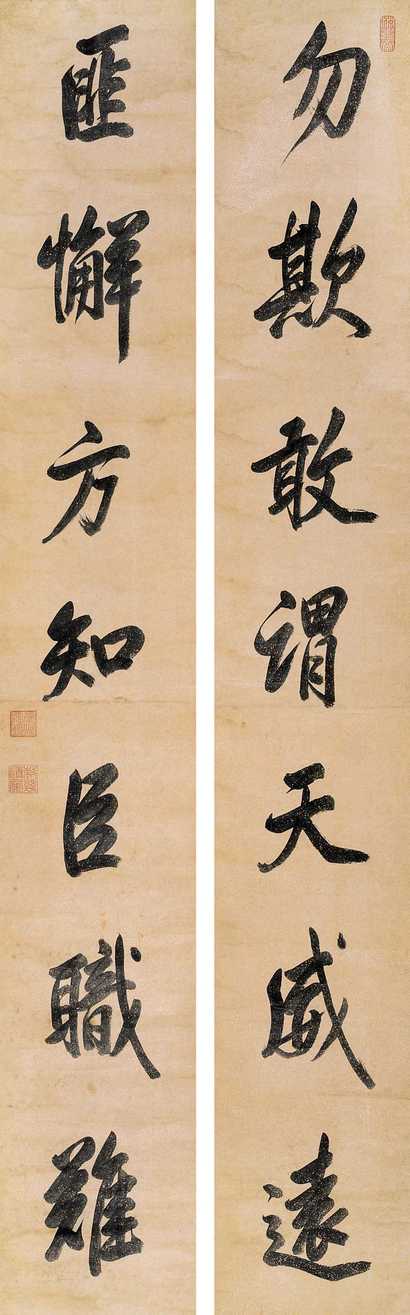 勿欺敢謂天威遠
匪懈方知臣職難